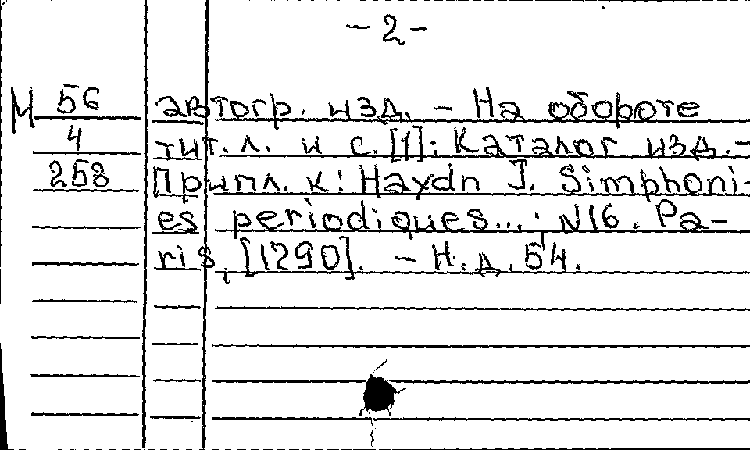 -2-
М 56 автогр. изд. - На обороте
4 тит. л. и с. [1]: Каталог изд. -
258 Припл. к: Haydn J. Simphoni-
es periodiques...; N16. Pa-
ris, [1290]. - Н. д. 54.